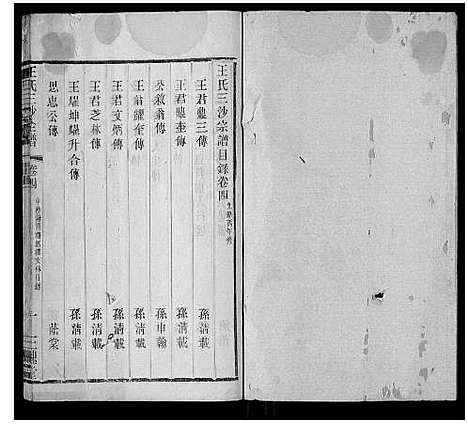 王氏三沙宗譜目錄卷四
王君鼎三傳 孫清載
王君鼎奎傳 孫清載
公敘翁傳 孫申翰
王翁耀奎傳 孫清載
王君文炳傳 孫清載
王君之林傳 孫清載
王耀坤耀升合傳 孫清載
思忠公傳 蔭棠
王氏三沙全譜